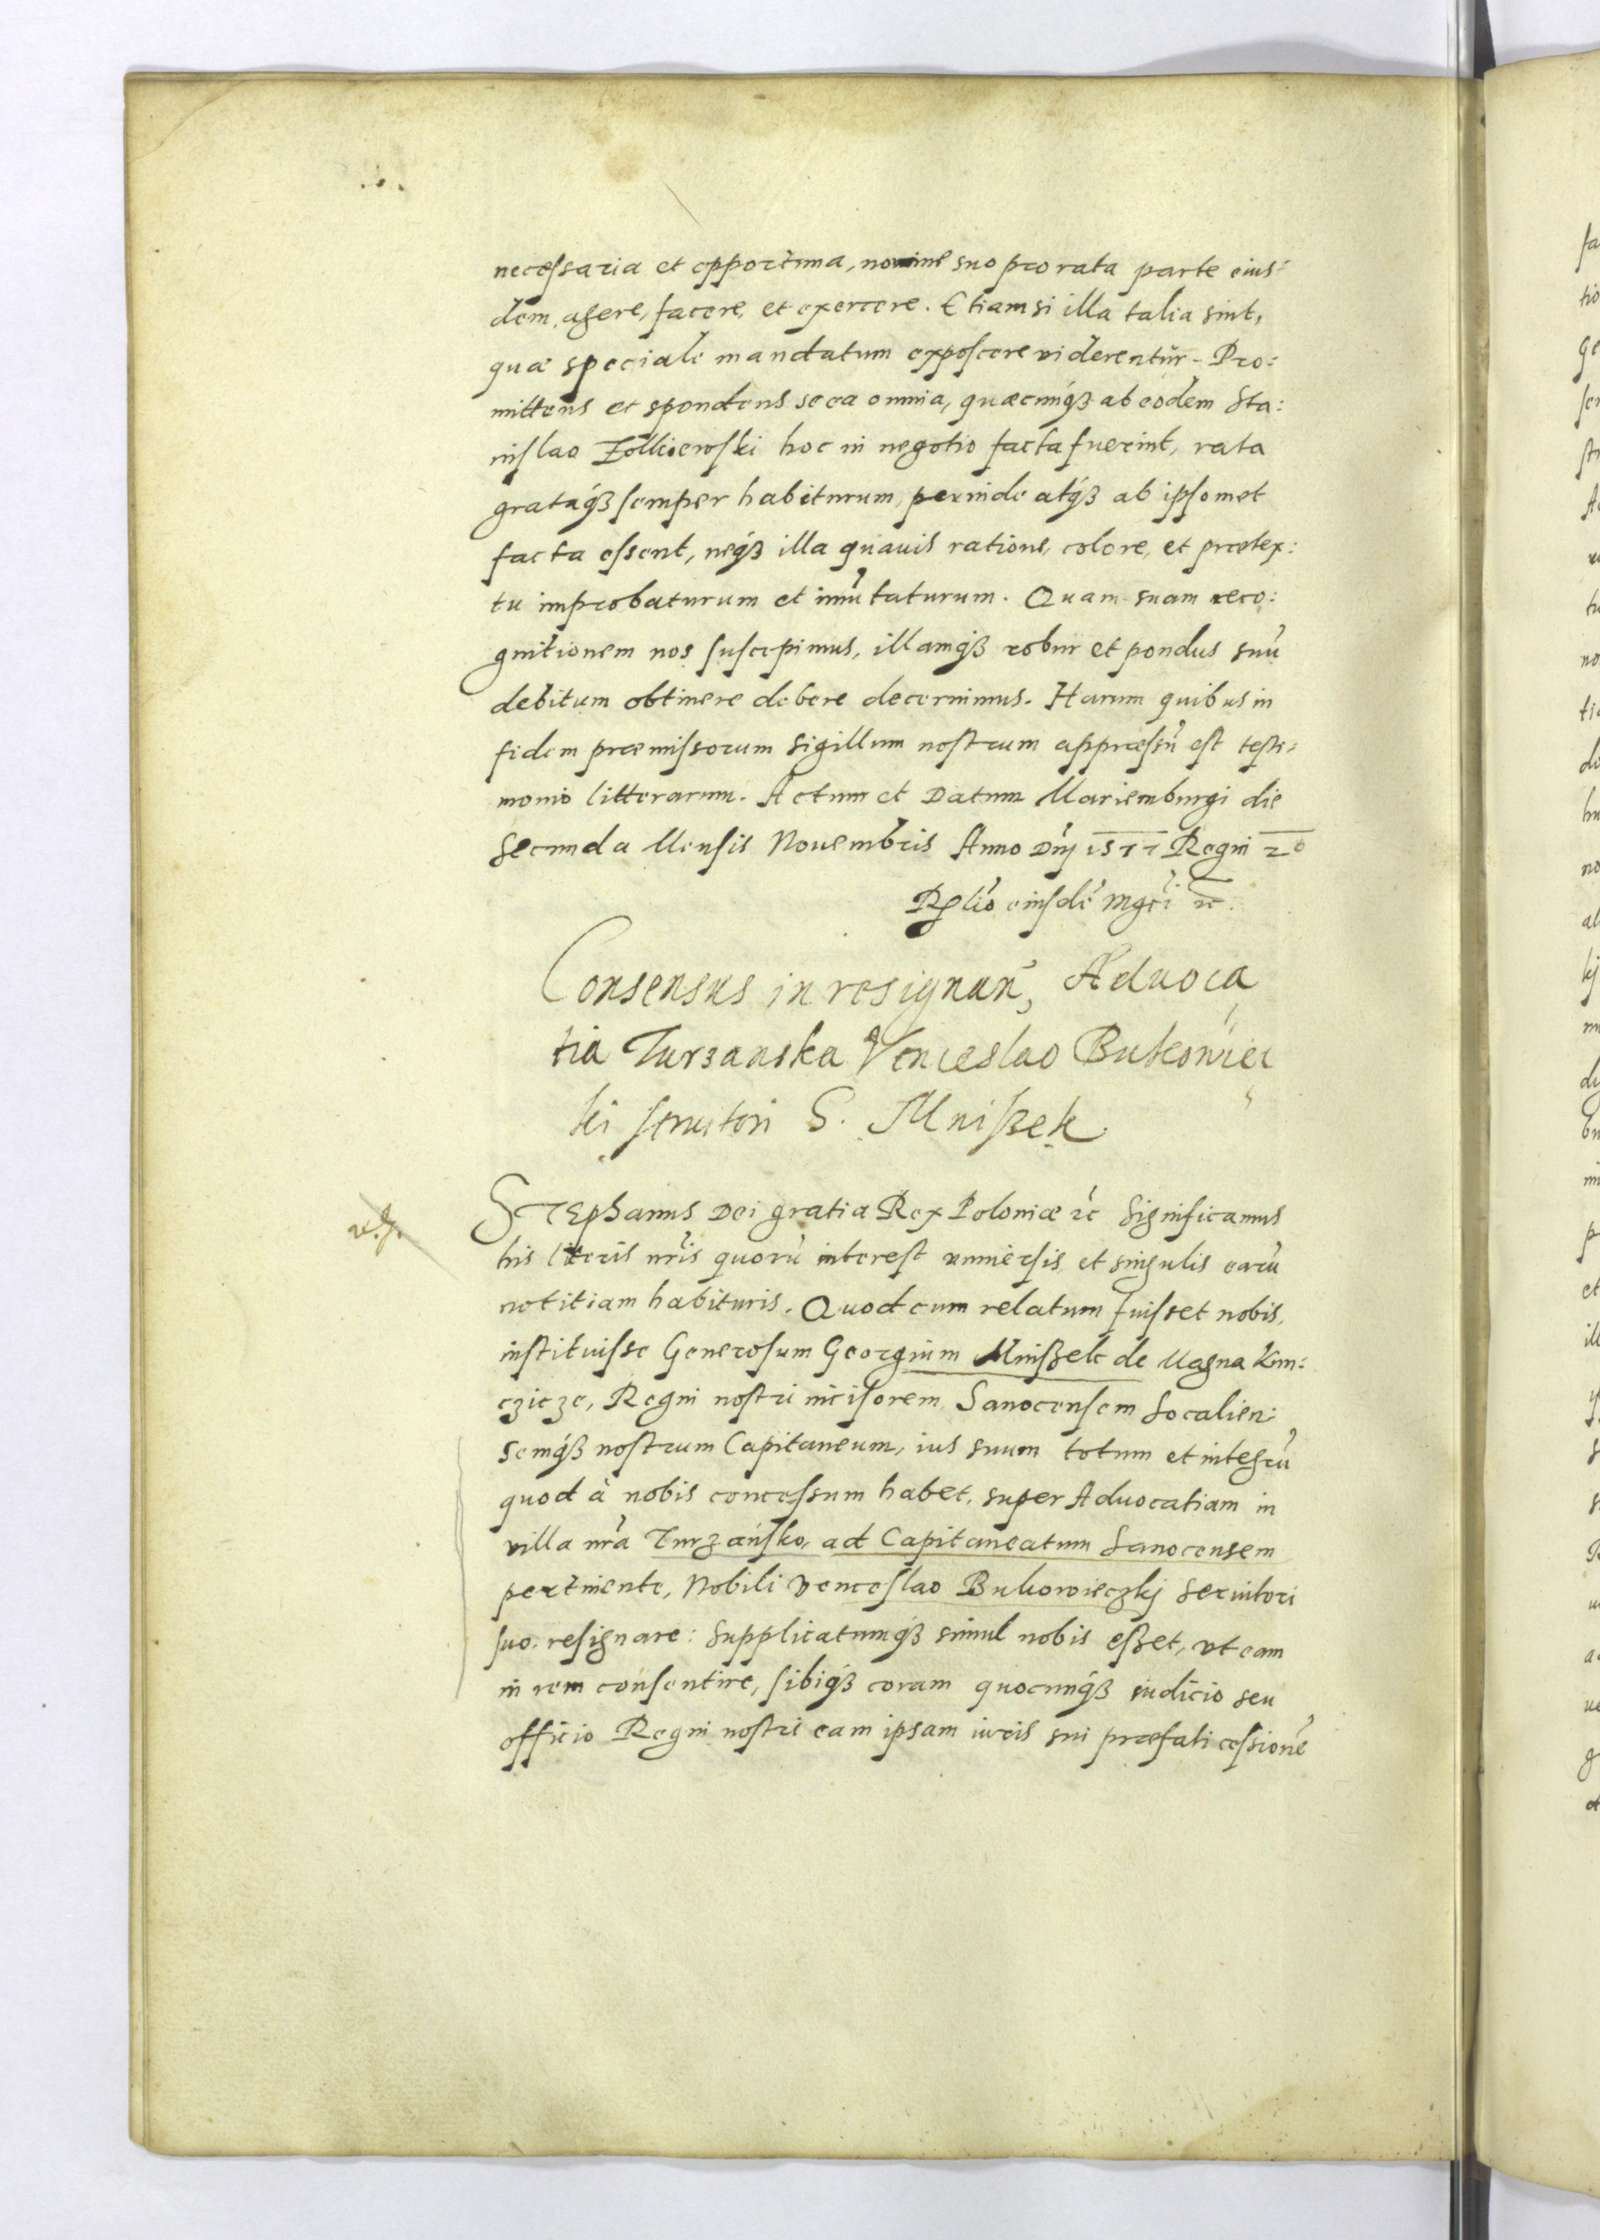 necessaria et opportuna, nomine suo pro rata parte eius:
dem, agere, facere, et exercere. Etiamsi illa talia sint,
quæ speciale mandatum exposcere viderentur. Pro:
mittens et spondens se ea omnia, quæcunq́ꝫ ab eodem Sta:
nislao Zolkiewski hoc in negotio facta fuerint, rata
grataq́ꝫ semper habiturum, perinde atq́ꝫ ab ipsomet
facta essent, neq́ꝫ illa quauis ratione, colore, et prætex:
tu improbaturum et im̃utaturum. Quam suam reco:
gnitionem nos suscepimus, illamq́ꝫ robur et pondus suũ
debitum obtinere debere decernimus. Harum quibus in
fidem præmissorum sigillum nostrum appræssũ est testi:
monio litterarum. Actum et Datum Mariemburgi die
Secunda Mensis Nouembris Anno Dnĩ 1577 Regni 2º
Rełio eiusdẽ Mgcĩ ꝛc.
Consensus in resignan̄, Aduoca
tia Turzanska Venceslao Bukowiec
ki seruitori G. Mnißek
Stephanus Dei gratia Rex Poloniæ ꝛc Significamus
his literis nr̃is quorũ interest vniuersis et singulis earũ
notitiam habituris. Quod cum relatum fuisset nobis,
instituisse Generosum Georgium Mnißek de Magna Kun:
czicze, Regni nostri incisorem Sanocensem Socalien:
semq́ꝫ nostrum Capitaneum, ius suum totum et integrũ
quod à nobis concessum habet, super Aduocatiam in
villa nr̃a Turzańsko, ad Capitaneatum Sanocensem
pertinente, Nobili Venceslao Bukowieczkj Seruitori
suo resignare: Supplicatumq́ꝫ simul nobis eßet, vt eam
in rem consentire, sibiq́ꝫ coram quocunq́ꝫ iudicio seu
officio Regni nostri eam ipsam iuris sui præfati cessionẽ